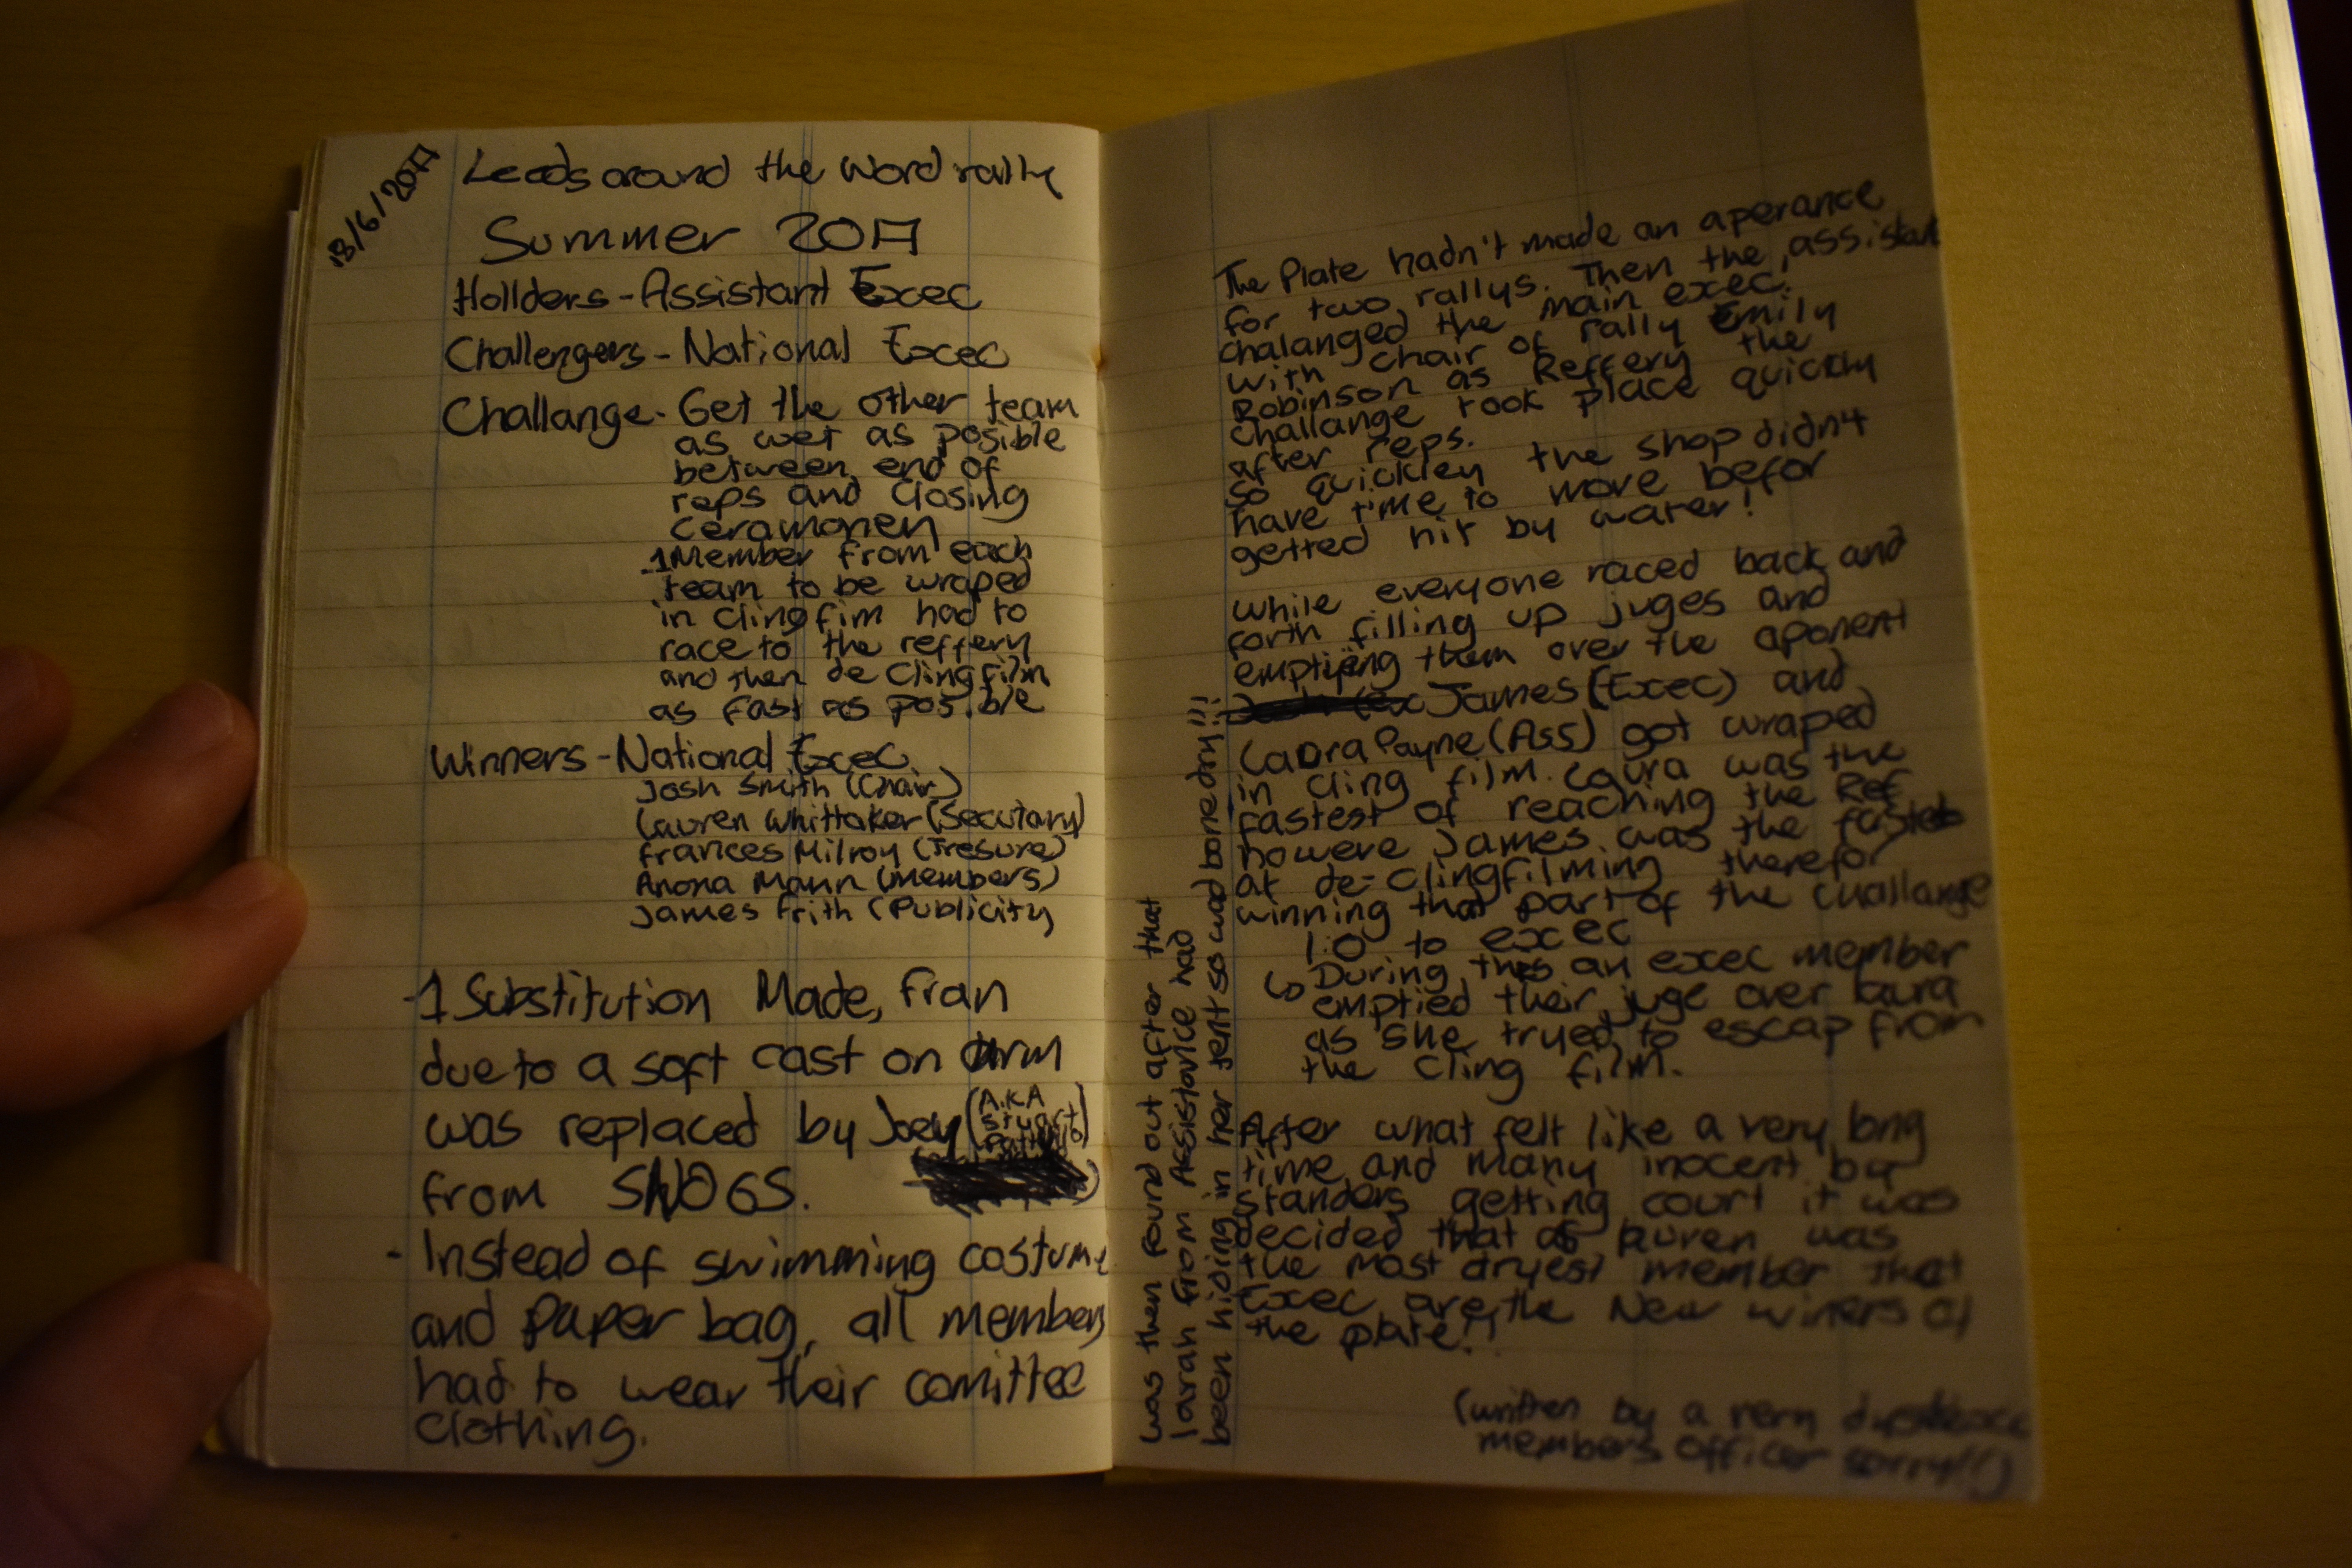 18/6/2017
Leeds around the Word rally
Summer 2017
Hollders - Assistant Exec
Challengers - National Exec
Challange - Get the other team
as wet as posible
between end of
reps and closing
ceramonen
.1 Member from each
team to be wraped
in clingfim had to
race to the reffery
and then de clingfilm
as fast as posible
Winners - National Exec
Josh Smith (Chair)
Lauren Whittaker (Secutary)
Frances Milroy (Tresure)
Anona Mann (members)
James Frith (Publicity
-1 Substitution Made, Fran
due to a soft cast on arm
was replaced by Joey (A.K.A
Stuart
)
from SNOGS.
- Instead of swimming costume
and paper bag, all members
had to wear their comittee
clothing.
The Plate hadn't made an aperance
for two rallys. Then the assistant
chalanged the main exec.
with chair of rally Emily
Robinson as Reffery the
challange took place quickly
after reps.
So quickley the shop didn't
have time to move befor
getted hit by water!
While everyone raced back and
forth filling up juges and
emptieng them over the aponent
James (Exec) and
Laura Payne (Ass) got wraped
in cling film. Laura was the
fastest of reaching the Ref
howere James was the fastest
at de-clingfilming therefor
winning that part of the challange
1:0 to exec
↳ During this an exec member
emptied their juge over laura
as she tryed to escap from
the cling film.
After what felt like a very long
time and many inocent by
standers getting court it was
decided that as lauren was
the most dryest member that
Exec are the New winers of
the plate!!
(written by a very dyslexic
members officer sorry!!)
was then found out after that
larah from Assistavice had
been hiding in her tent so was bone dry!!!